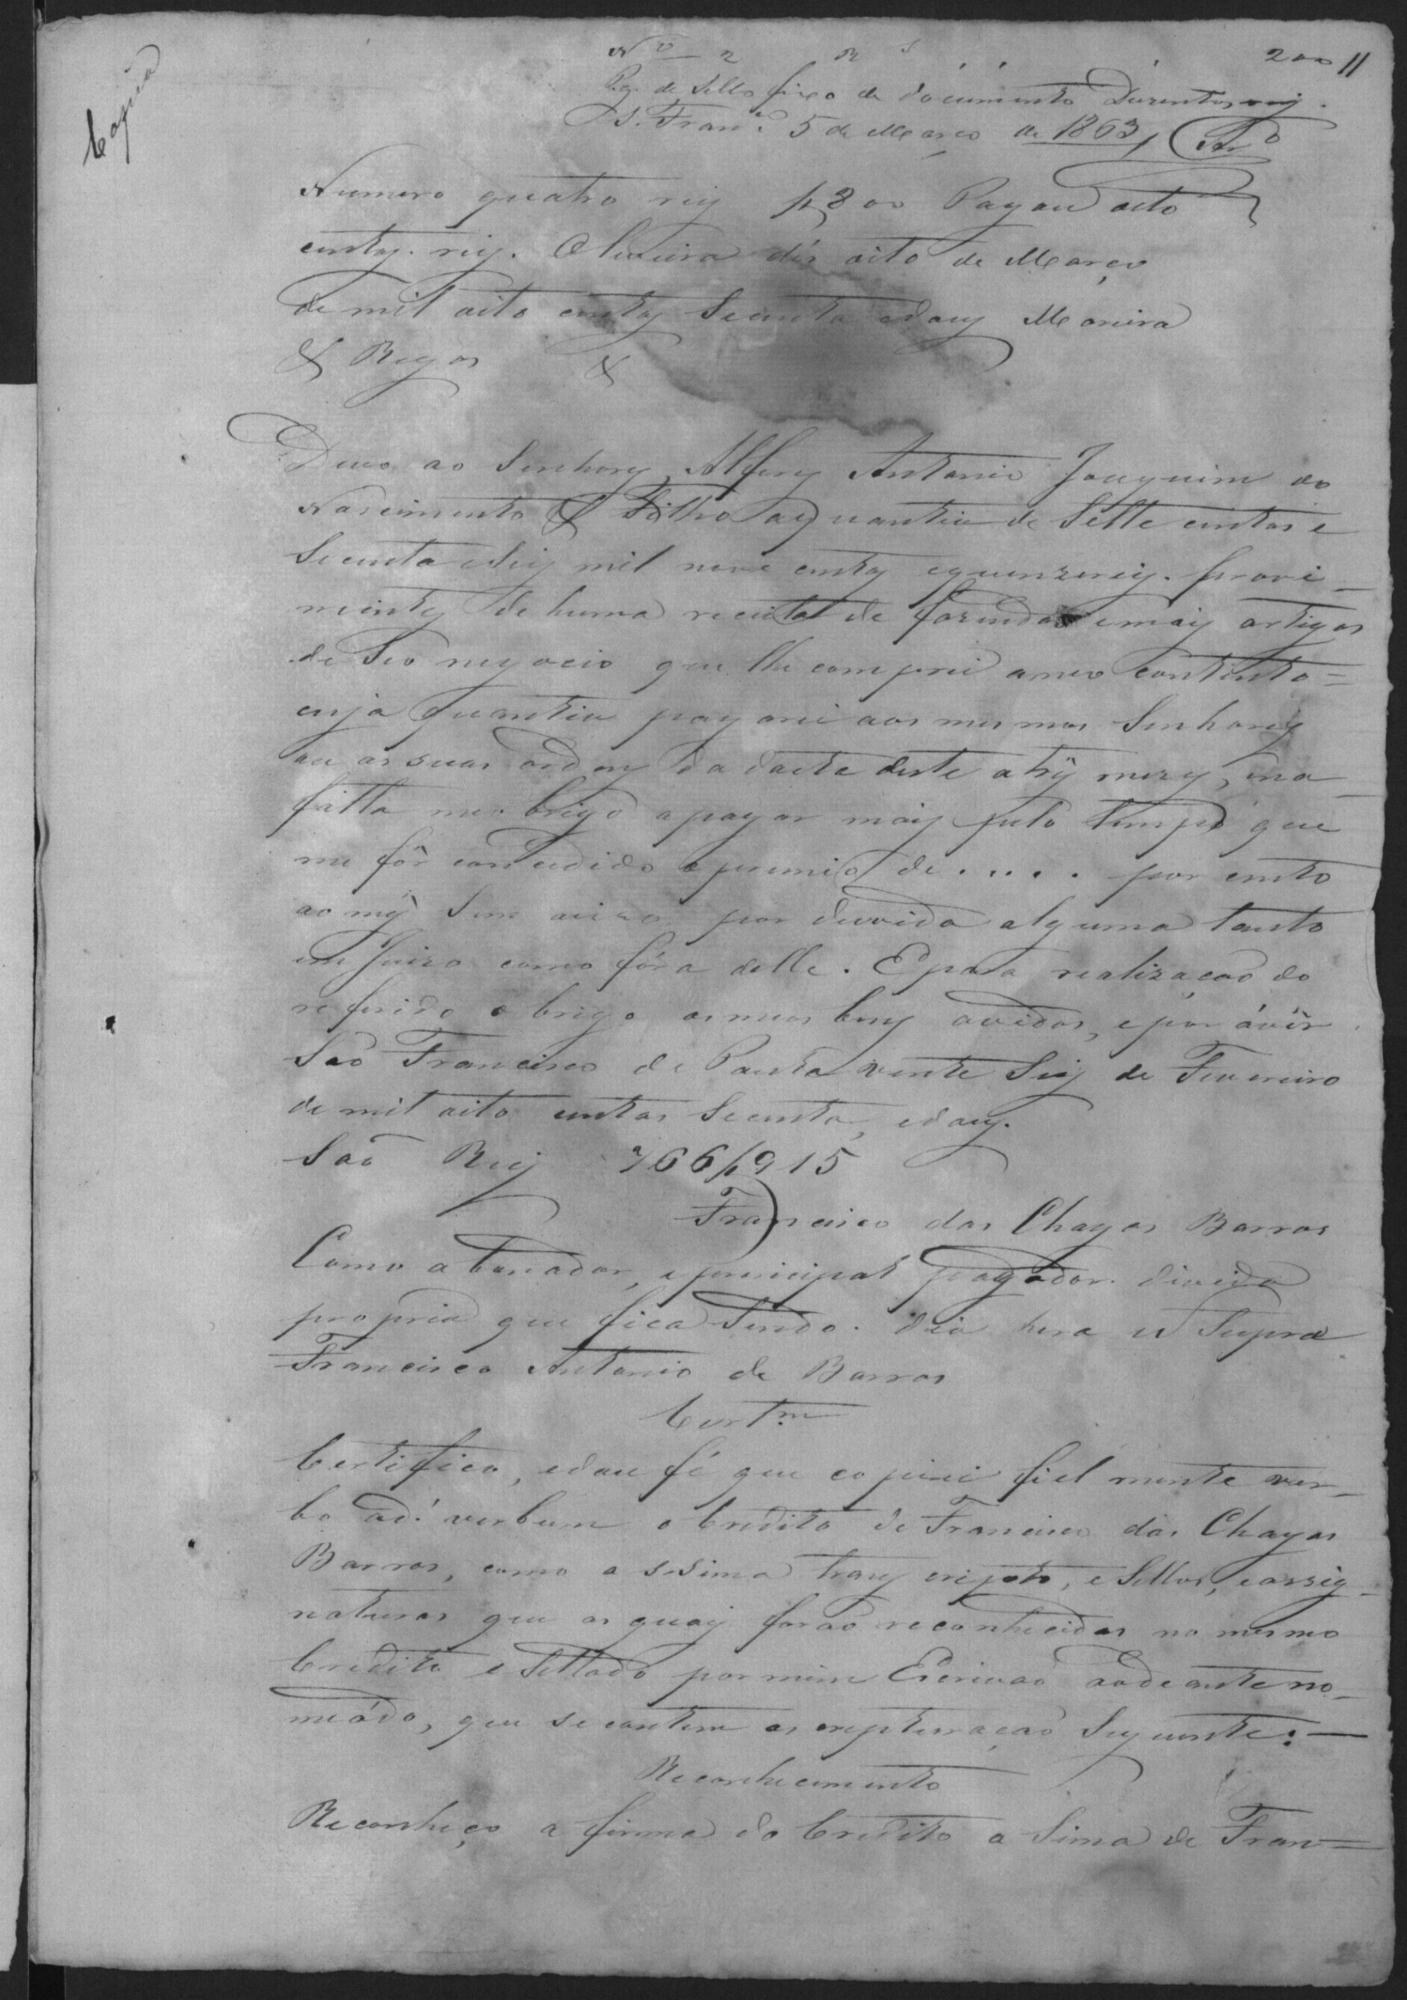 Copia
Nº 2 Rs 200 11
Pg. de Sello fixo de documento Duzentos reis.
S. Franco 5 de Março de 1863
Numero quatro reis $800 Pagou oito
centos reis. Oliveira des oito de Março
de mil oito centos Secenta edous Moreira
& Regos &
Devo ao Senhores Alferes Antonio Joaquim do
Nascimento & Filho aquantia de Sette centos e
Secenta eSeis mil nove centos equinzereis. provi-
nientes de huma receita de fazendas emais artigos
de Seo negocio que lhe comprei ameo contento=
cuja quantia pagarei aos mesmos Senhores
ou assuas ordens da dacta deste a tres mezes, ena
falta meobrigo apagar mais pelo tempo que
me fôr concedido o premio de . . . . por cento
ao mês Sem aviso por duvida alguma tanto
em Juizo como fóra delle. Epara realizacaõ do
referido obrigo osmeos bens avidos, epor avêr
Saõ Francisco de Paula vinte Seis de Fevereiro
de mil oito centos Secenta, edous.
Saõ Reis 766$915
Francisco das Chagas Barros
Como abonador, eprincipal pagador. divida
propria que fica Sendo. dia hera ut Supra
Francisco Antonio de Barros
Certam
Certifico, edou fé que copiei fiel mente ver-
bo ad. verbum oCredito de Francisco das Chagas
Barros, como a ssima transcripto, eSellos, eassig-
naturas que as quais foraõ reconhecidas no mesmo
Credito eSellado pormim Escrivaõ aodeante no-
meádo, que secontem as Seguinte: —
Reconhecimento
Reconheço a firma do Credito a Sima de Fran=